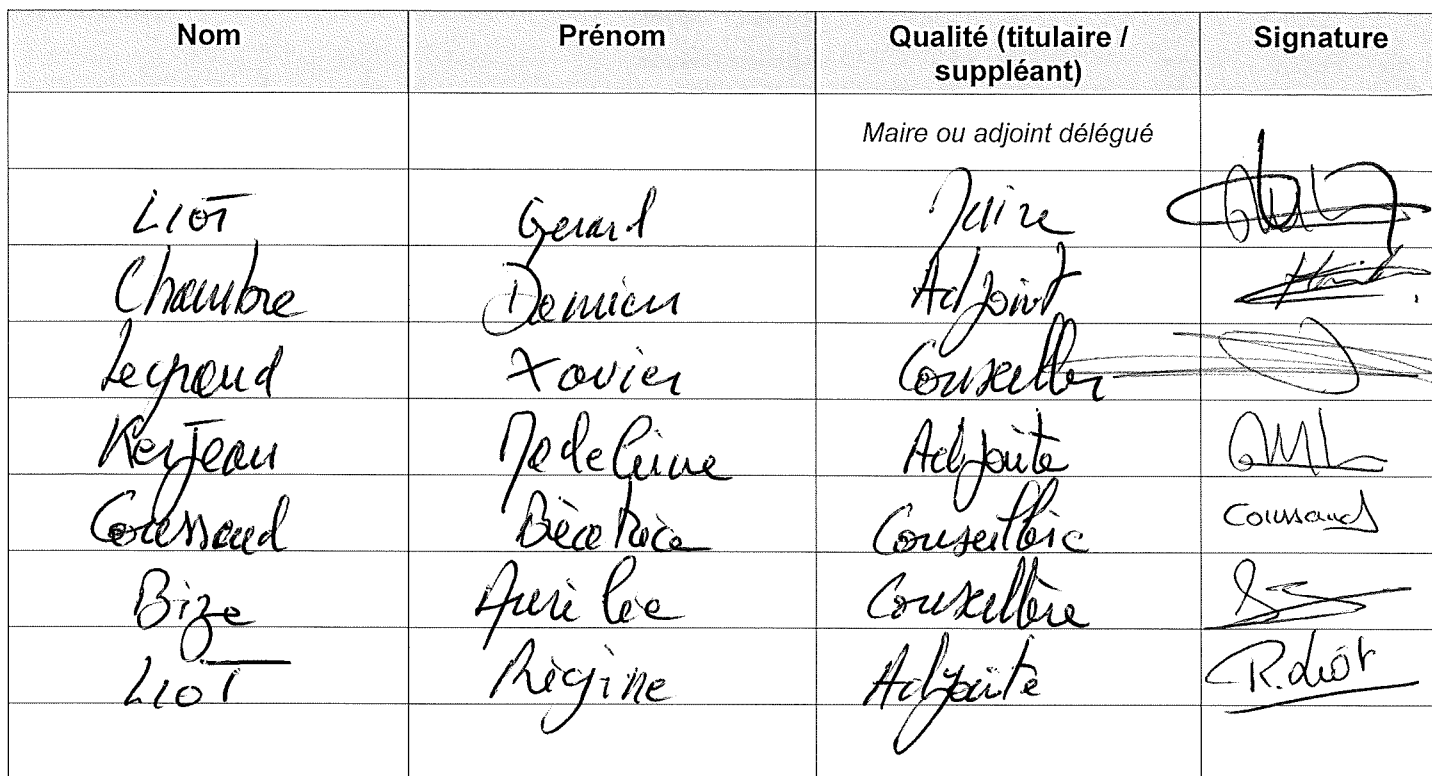 Nom Prénom Qualité (titulaire / suppléant) Signature
Maire ou adjoint délégué
LIOT Gerard Maire
Chambre Damien Adjoint
Legrand Xavier Conseiller
KerJean Madeleine Adjointe
Coussaud Béatrice Conseillère Coussaud
Bize Aurélie Conseillère
LIOT Régine Adjointe R. Liot